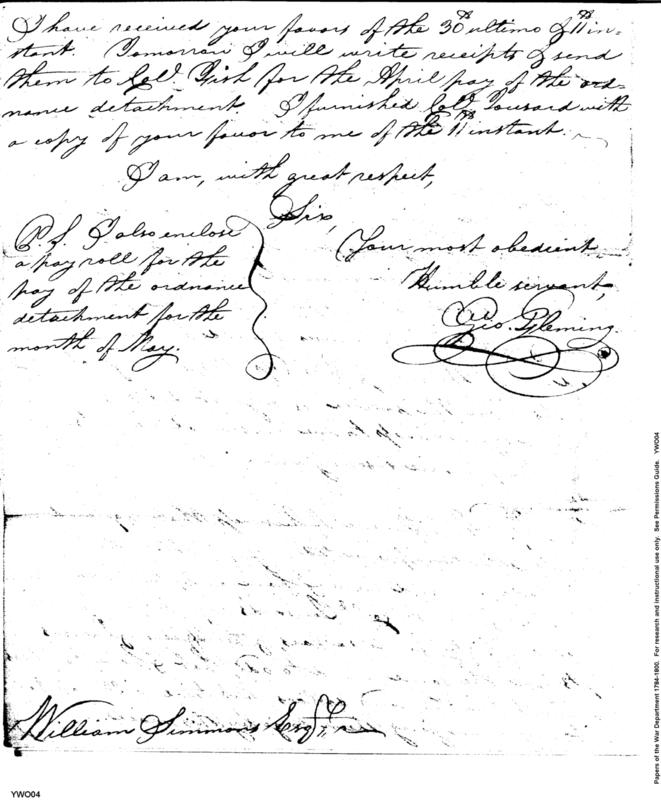 I have received your favors of the 30th ultimo & 11th in-
stant. Tomorrow I will write receipts & send
them to Colo. Fish for the April pay of the ord-
nance detachment. I furnished Colo. Tousard with
a copy of your favor to me of the 11th instant.
I am, with great respect,
Sir,
Your most obedient
Humble servant,
Geo. Fleming.
P.S. I also enclose
a pay roll for the
pay of the ordnance
detachment for the
month of May.
William Simmons Esqr.
YWO04
Papers of the War Department 1784-1800. For research and instructional use only. See Permissions Guide. YWO04